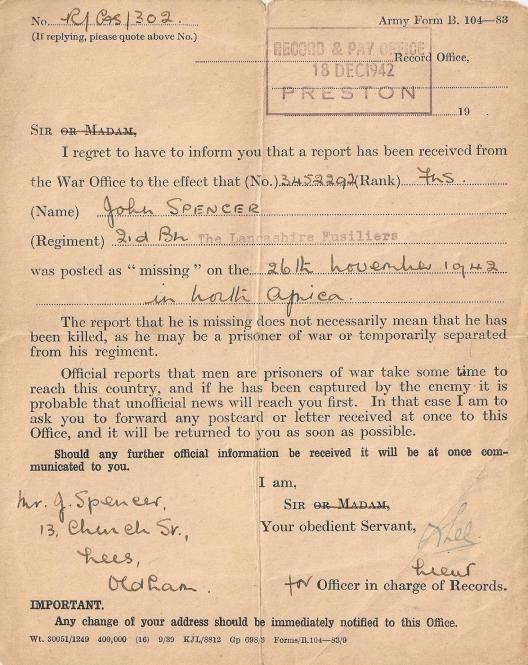 No. R/Cas/302.
Army Form B. 104—83
(If replying, please quote above No.)
RECORD & PAY OFFICE
Record Office,
18 DEC 1942
PRESTON
19 .
SIR OR MADAM,
I regret to have to inform you that a report has been received from
the War Office to the effect that (No.) 3452292 (Rank) Fus.
(Name) John SPENCER
(Regiment) 2nd Bn The Lancashire Fusiliers
was posted as “ missing ” on the 26th November 1942
in North Africa.
The report that he is missing does not necessarily mean that he has
been killed, as he may be a prisoner of war or temporarily separated
from his regiment.
Official reports that men are prisoners of war take some time to
reach this country, and if he has been captured by the enemy it is
probable that unofficial news will reach you first. In that case I am to
ask you to forward any postcard or letter received at once to this
Office, and it will be returned to you as soon as possible.
Should any further official information be received it will be at once com-
municated to you.
I am,
SIR OR MADAM,
Your obedient Servant,
Lieut
for Officer in charge of Records.
Mr. J. Spencer,
13, Church St.,
Lees,
Oldham.
IMPORTANT.
Any change of your address should be immediately notified to this Office.
Wt. 30051/1249 400,000 (16) 9/39 KJL/8812 Gp 698/3 Forms/B.104—83/9